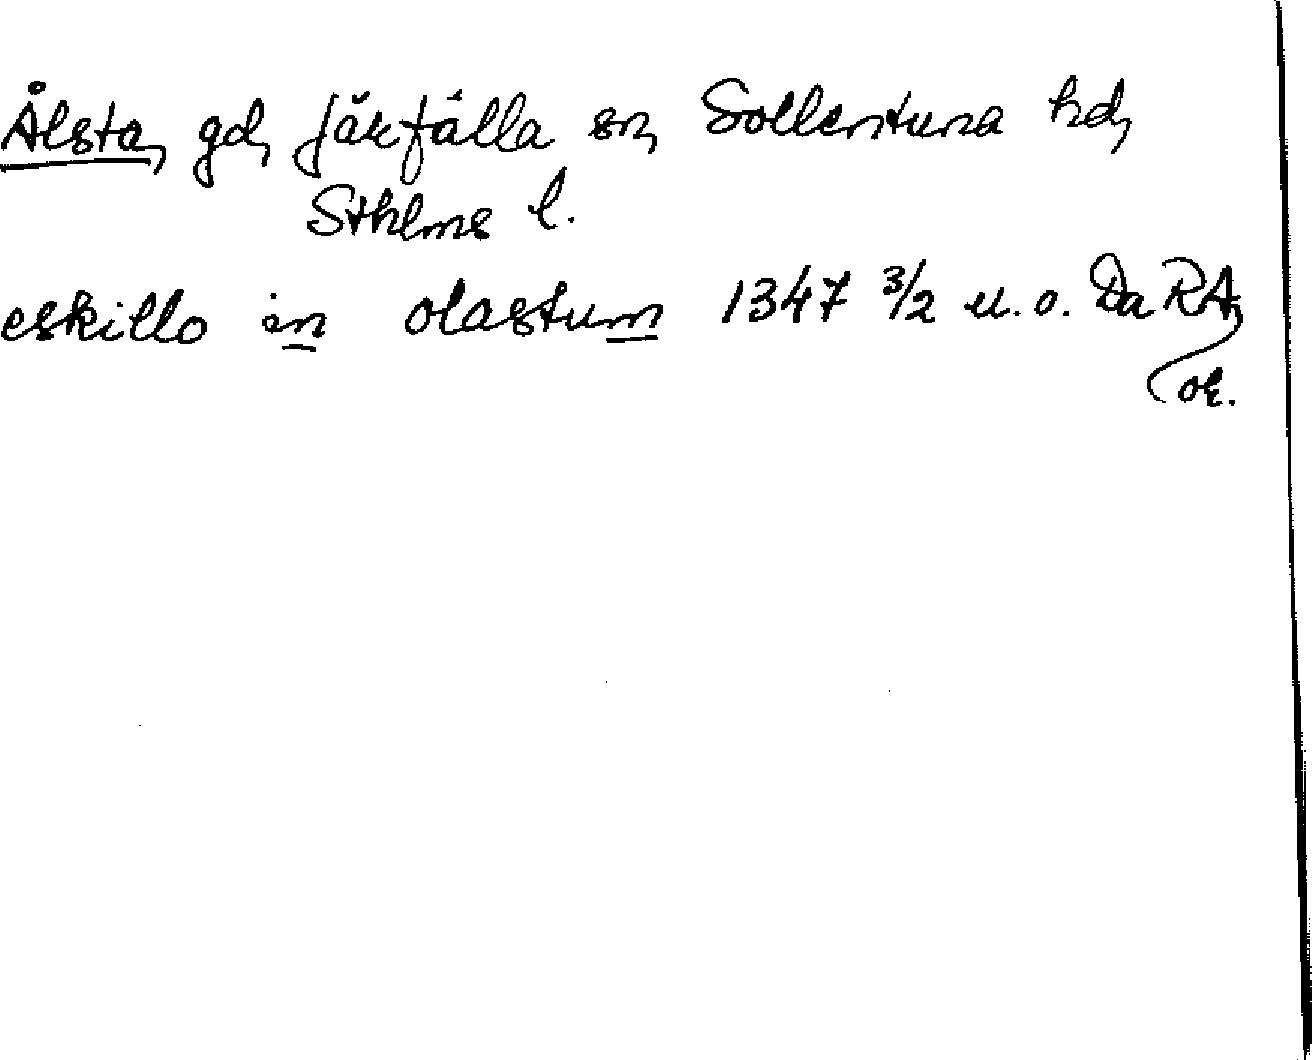 Ålsta, gd, Järfälla sn, Sollentuna hd,
Sthlms l.
eskillo in olastum 1347 3/2 u.o. Da RA,
or.